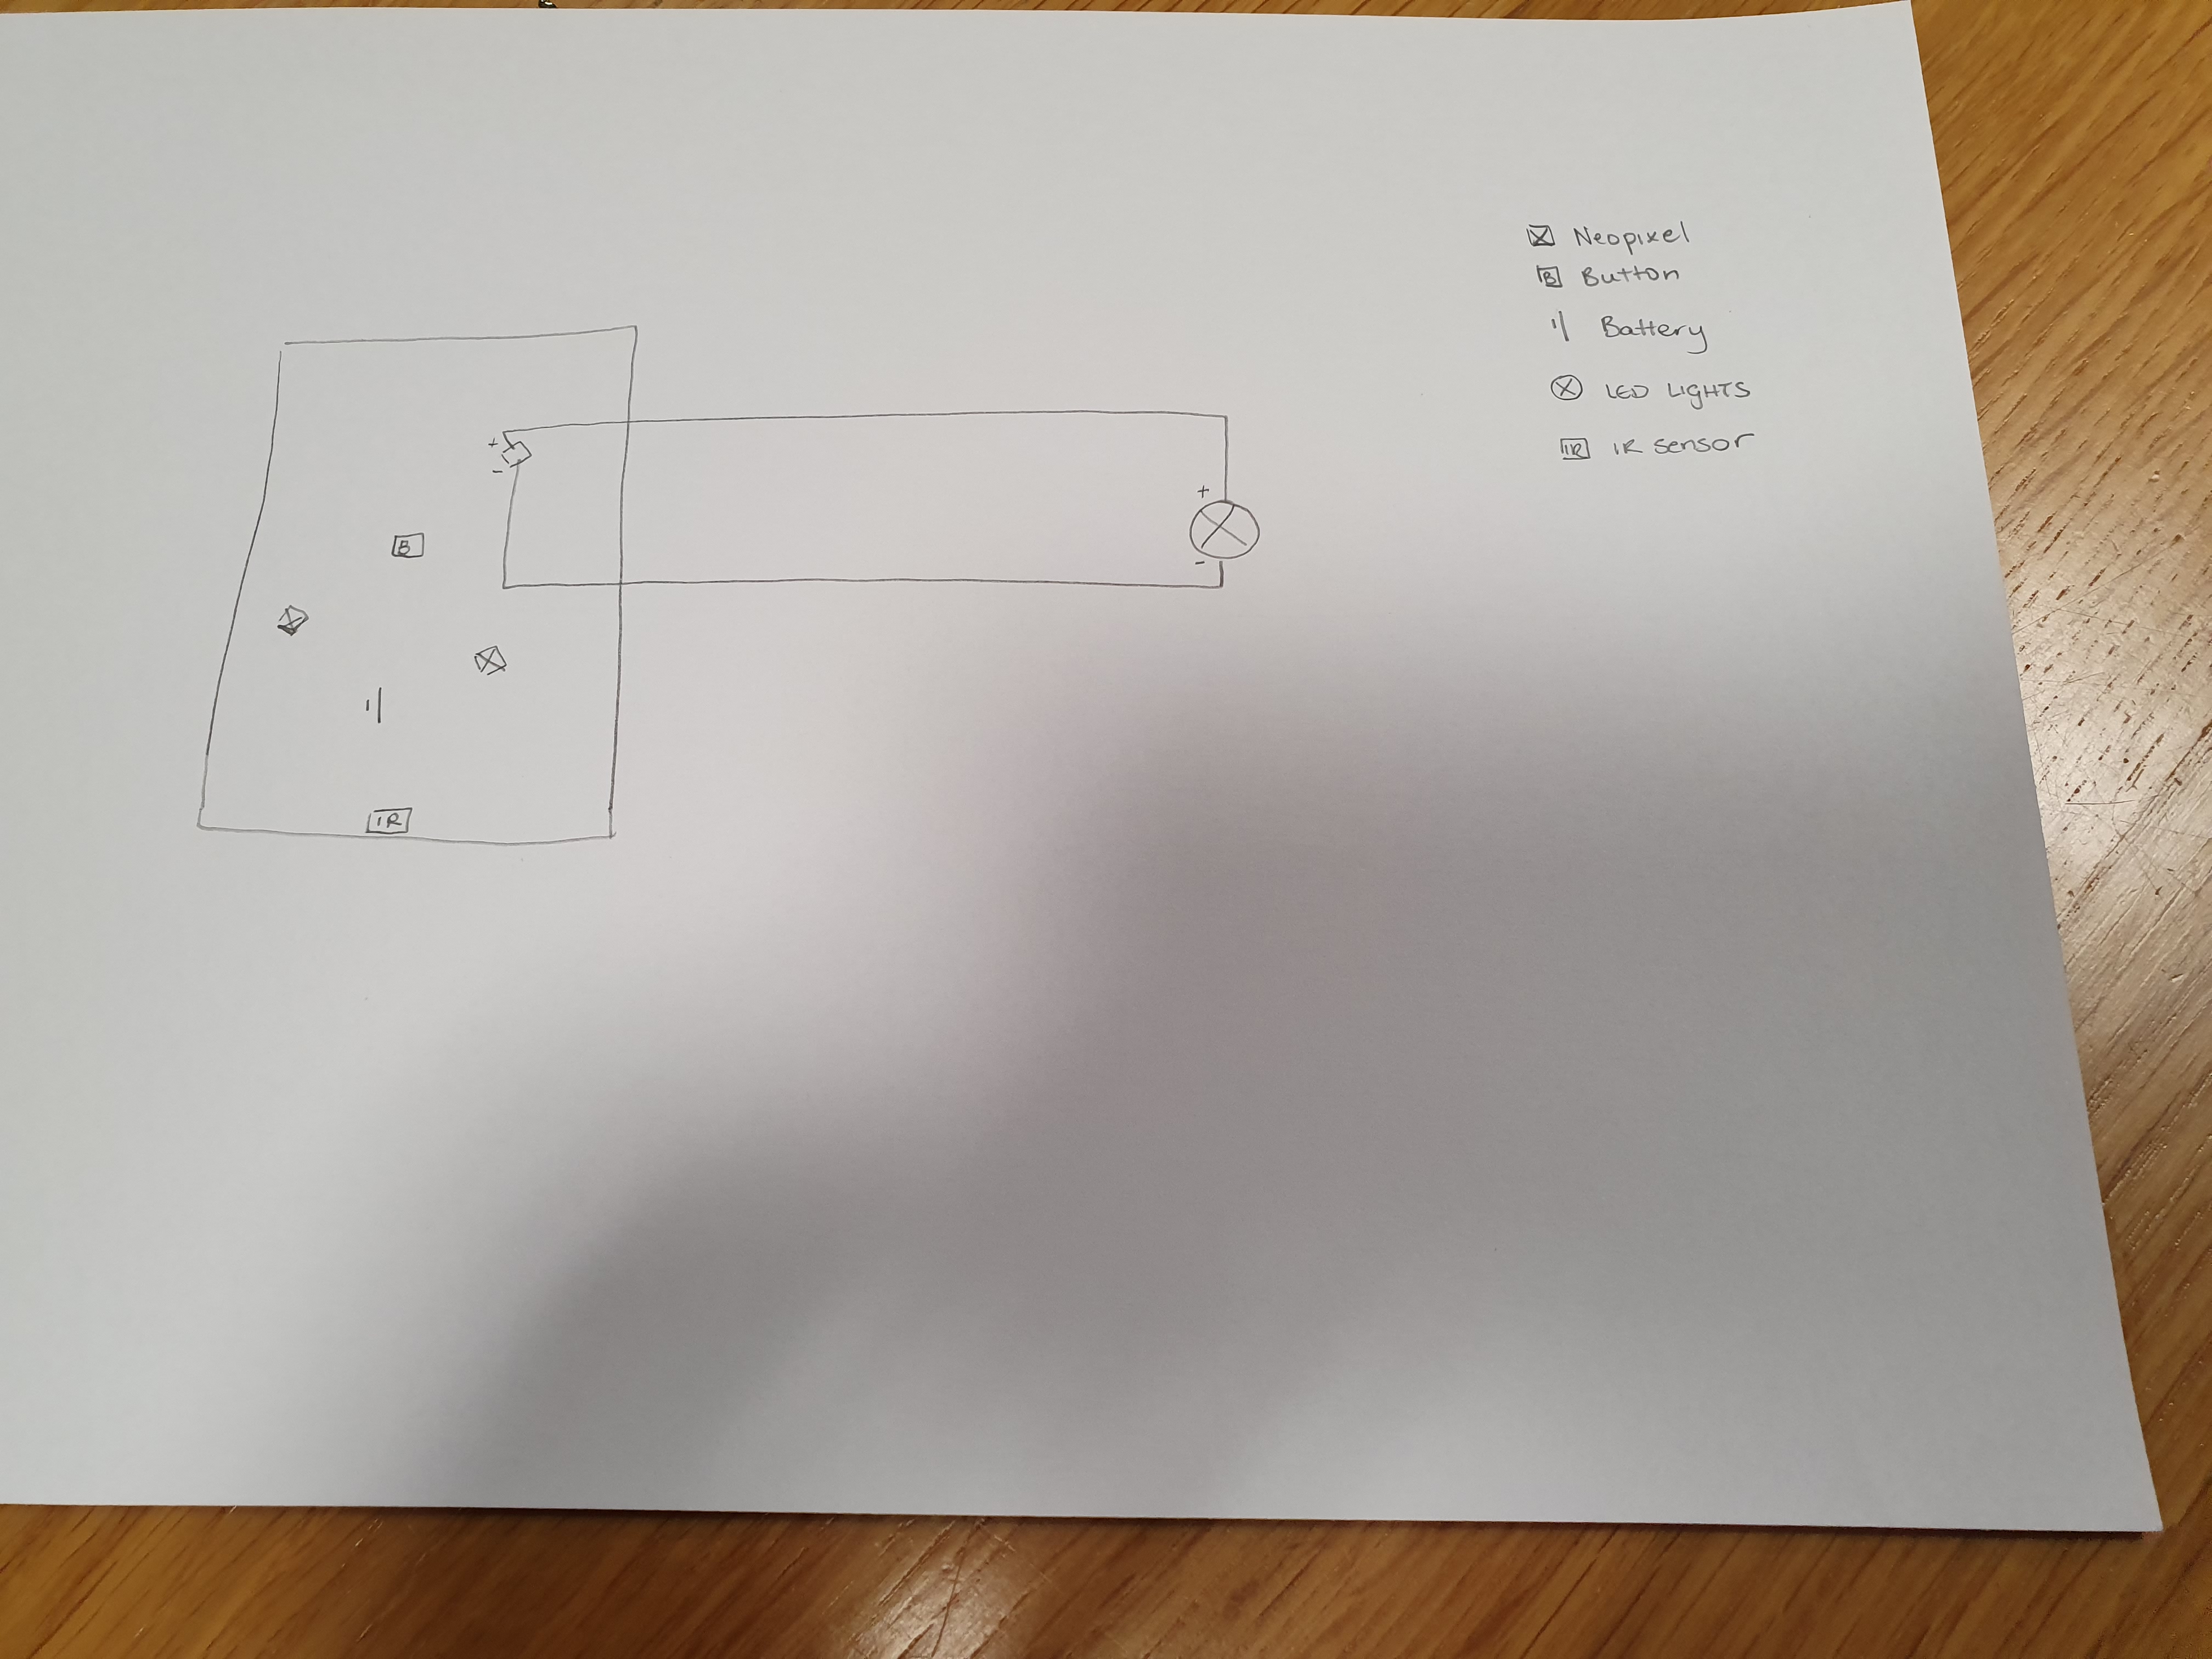 Neopixel
B Button
Battery
LED LIGHTS
IR IR sensor
+
-
+
-
B
IR